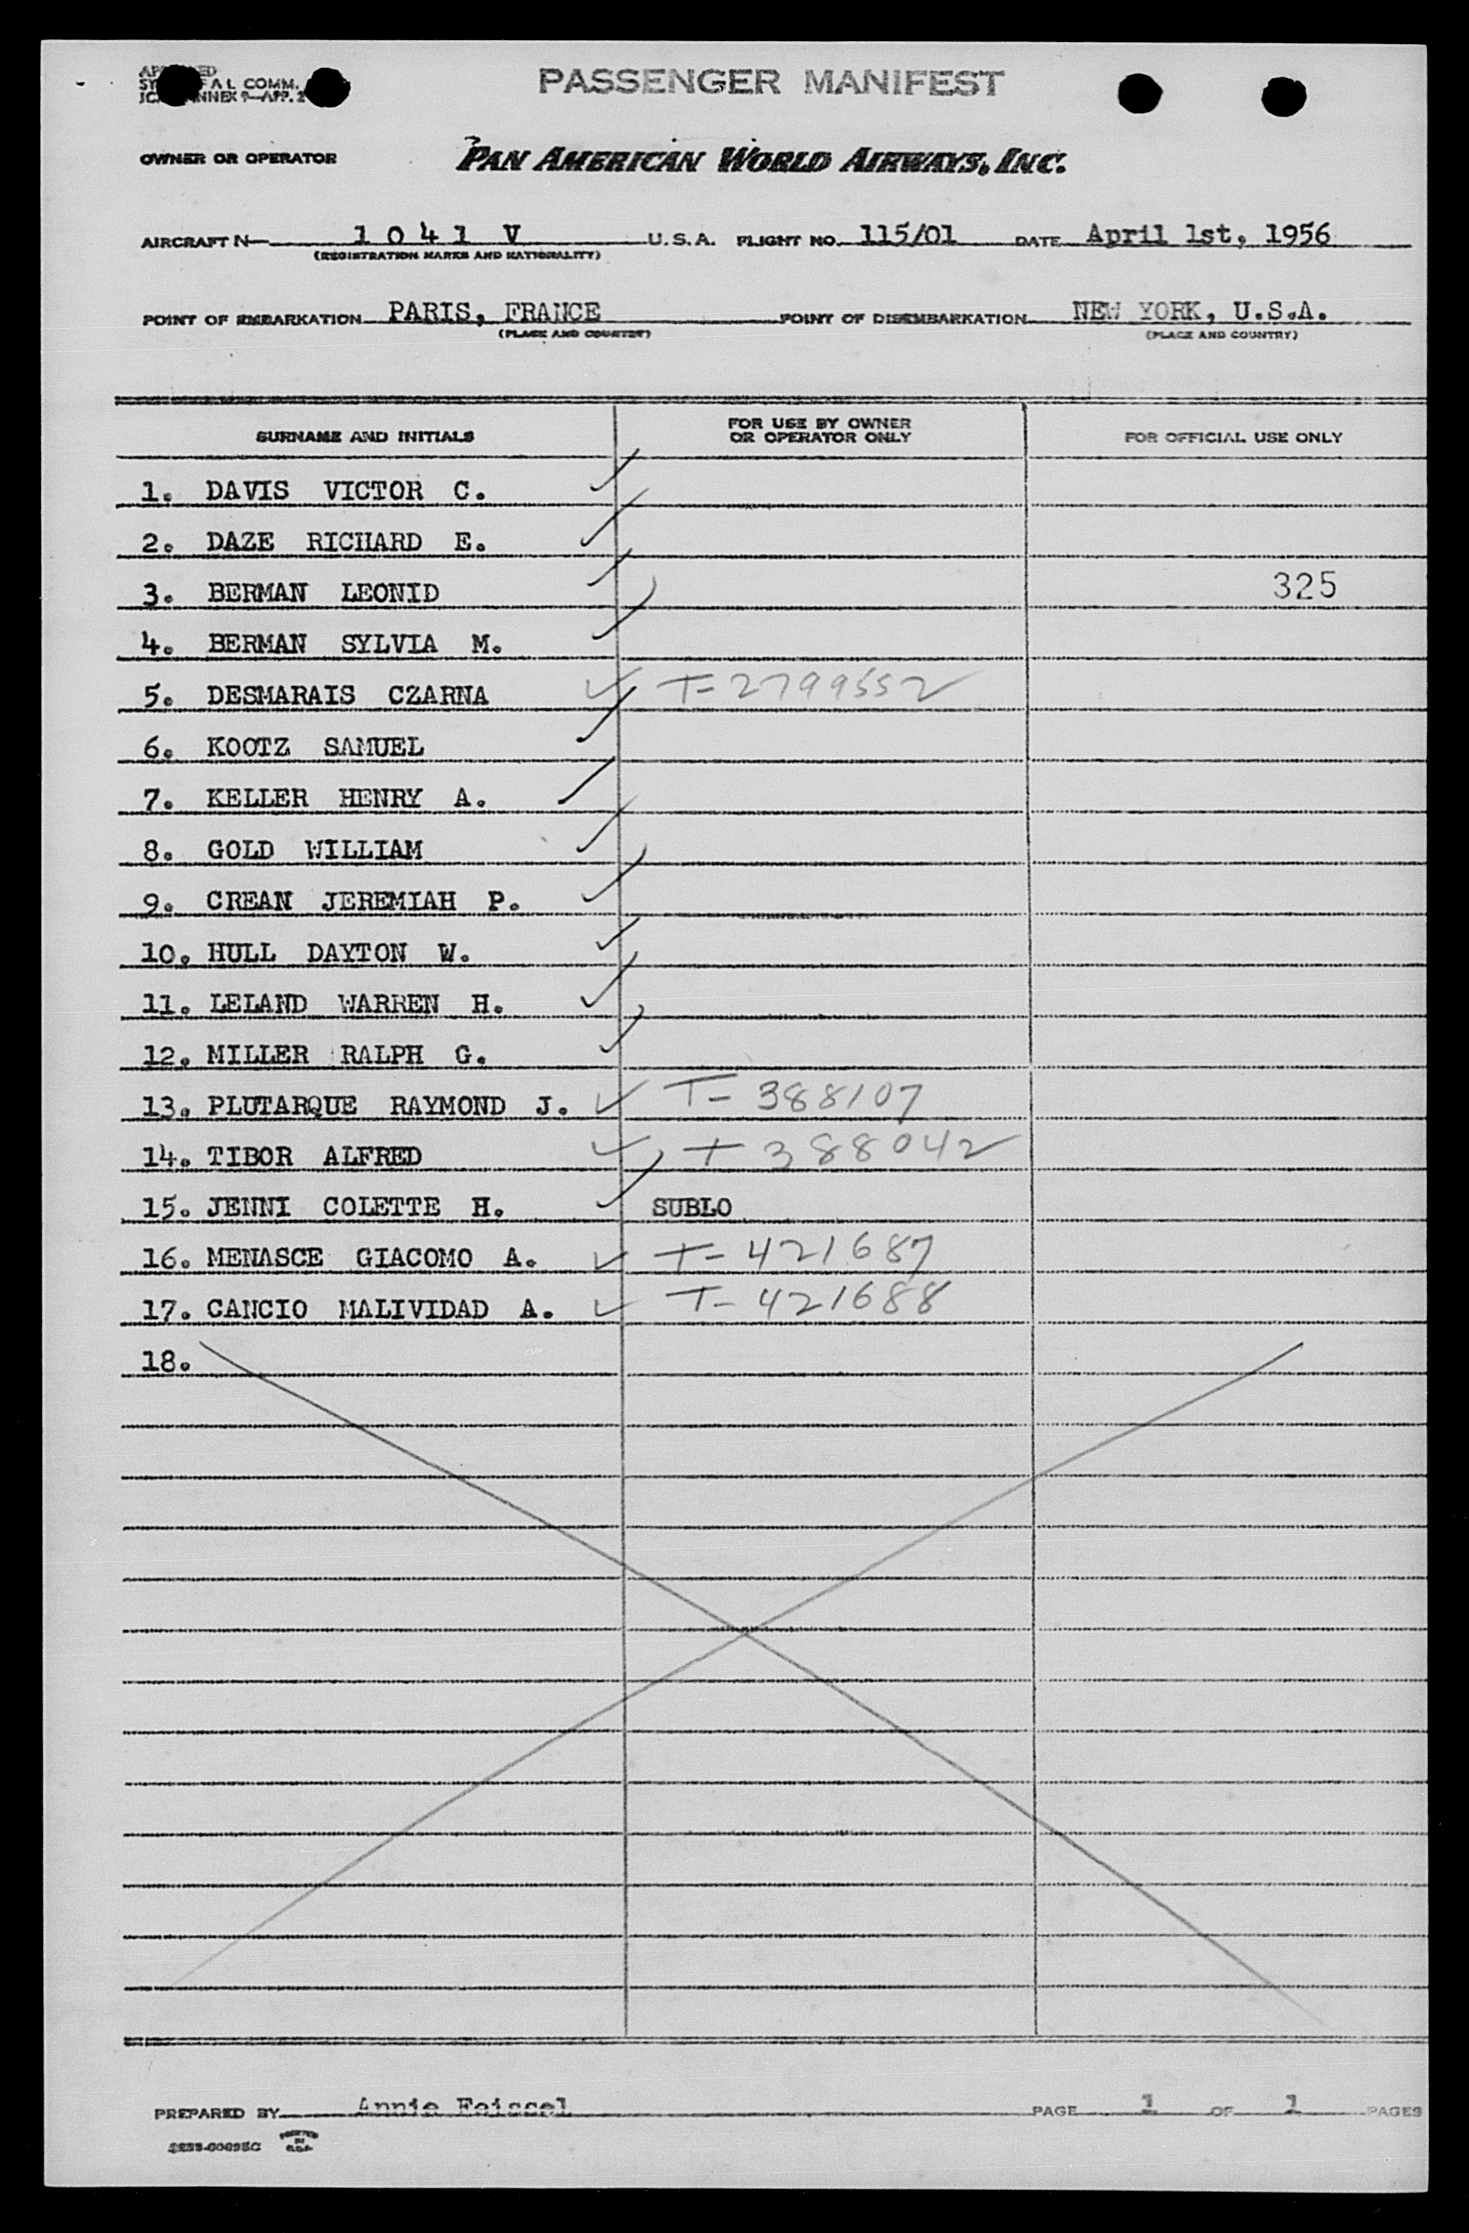 PASSENGER MANIFEST
OWNER OR OPERATOR PAN AMERICAN WORLD AIRWAYS, INC.
AIRCRAFT N— 1 0 4 1 V U.S.A. FLIGHT NO. 115/01 DATE April 1st, 1956
(REGISTRATION MARKS AND NATIONALITY)
POINT OF EMBARKATION PARIS, FRANCE POINT OF DISEMBARKATION NEW YORK, U.S.A.
(PLACE AND COUNTRY) (PLACE AND COUNTRY)
SURNAME AND INITIALS FOR USE BY OWNER OR OPERATOR ONLY FOR OFFICIAL USE ONLY
1. DAVIS VICTOR C.
2. DAZE RICHARD E.
3. BERMAN LEONID 325
4. BERMAN SYLVIA M.
5. DESMARAIS CZARNA T-2799552
6. KOOTZ SAMUEL
7. KELLER HENRY A.
8. GOLD WILLIAM
9. CREAN JEREMIAH P.
10. HULL DAYTON W.
11. LELAND WARREN H.
12. MILLER RALPH G.
13. PLUTARQUE RAYMOND J. T-388107
14. TIBOR ALFRED T 388042
15. JENNI COLETTE H. SUBLO
16. MENASCE GIACOMO A. T-421687
17. CANCIO MALIVIDAD A. T-421688
18.
PREPARED BY Annie Feissel PAGE 1 OF 1 PAGES
PRINTED IN U.S.A.